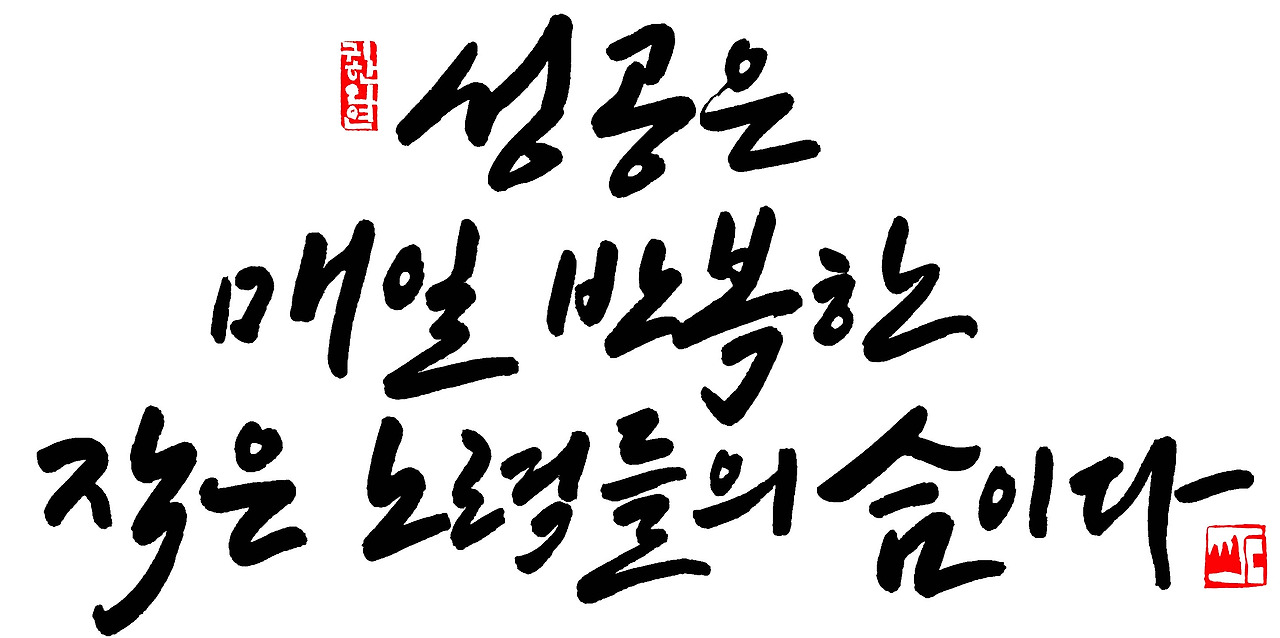 성공은
매일 반복한
작은 노력들의 숨이다